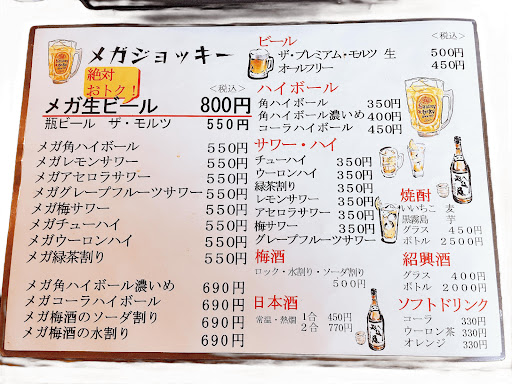 メガジョッキー
絶対
おトク！
<税込>
メガ生ビール 800円
瓶ビール ザ・モルツ 550円
メガ角ハイボール 550円
メガレモンサワー 550円
メガアセロラサワー 550円
メガグレープフルーツサワー 550円
メガ梅サワー 550円
メガチューハイ 550円
メガウーロンハイ 550円
メガ緑茶割り 550円
メガ角ハイボール濃いめ 690円
メガコーラハイボール 690円
メガ梅酒のソーダ割り 690円
メガ梅酒の水割り 690円
ビール
<税込>
ザ・プレミアム・モルツ 生 500円
オールフリー 450円
ハイボール
角ハイボール 350円
角ハイボール濃いめ 400円
コーラハイボール 450円
サワー・ハイ
チューハイ 350円
ウーロンハイ 350円
緑茶割り 350円
レモンサワー 350円
アセロラサワー 350円
梅サワー 350円
グレープフルーツサワー 350円
梅酒
ロック・水割り・ソーダ割り
500円
日本酒
常温・熱燗 1合 450円
2合 770円
焼酎
いいちこ 麦
黒霧島 芋
グラス 450円
ボトル 2500円
紹興酒
グラス 400円
ボトル 2000円
ソフトドリンク
コーラ 330円
ウーロン茶 330円
オレンジ 330円